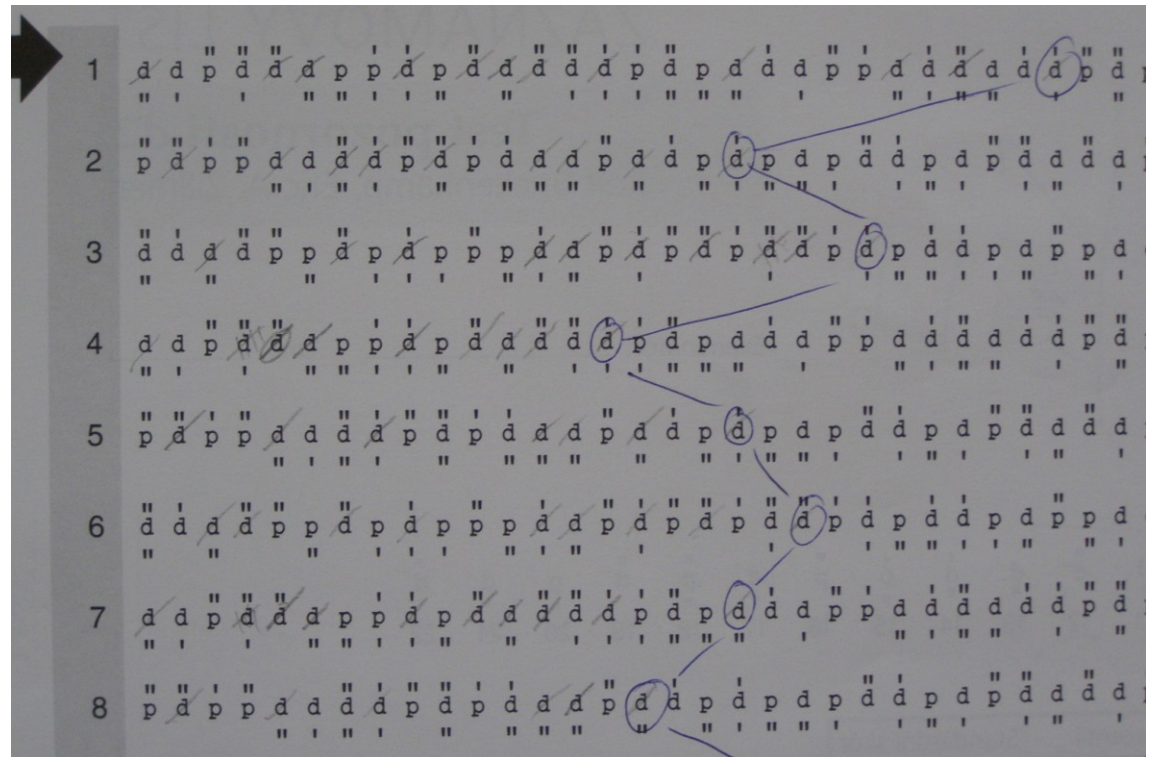 1 d d p d d d p p d p d d d d d p d p d d d p p d d d d d d p d
2 p d p p d d d d p d p d d d p d d p d p d p d d p d p d d d d
3 d d d d p p d p d p p p d d p d p d p d d p d p d d p d p p d
4 d d p d d d p p d p d d d d d p d p d d d p p d d d d d d p d
5 p d p p d d d d p d p d d d p d d p d p d p d d p d p d d d d
6 d d d d p p d p d p p p d d p d p d p d d p d p d d p d p p d
7 d d p d d d p p d p d d d d d p d p d d d p p d d d d d d p d
8 p d p p d d d d p d p d d d p d d p d p d p d d p d p d d d d